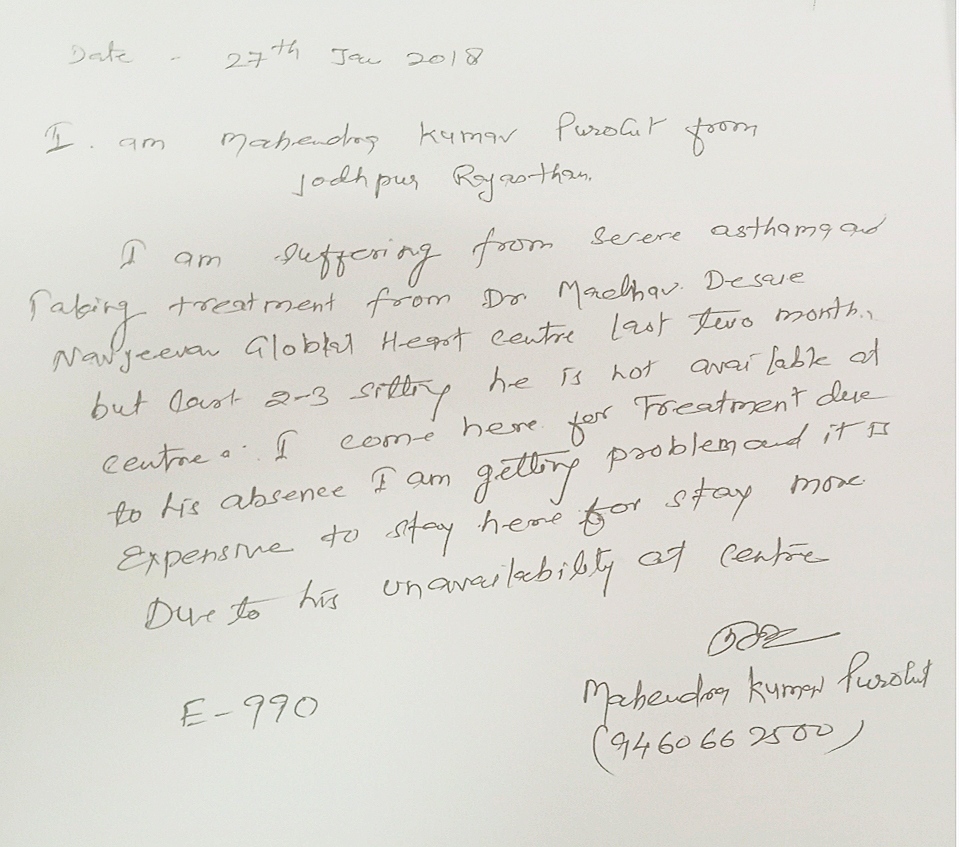 Date - 27th Jan 2018
I. am Mahendra Kumar Purohit from
Jodhpur Rajasthan.
I am suffering from Severe asthama and
Taking treatment from Dr. Madhav. Desai
Navjeevan Global Heart centre last two month.,
but last 2-3 sitting he is not available at
centre. I come here for Treatment due
to his absence I am getting problem and it is
Expensive to stay here for stay more
Due to his unavailability at Centre
Mahendra Kumar Purohit
E-990
(9460662500)